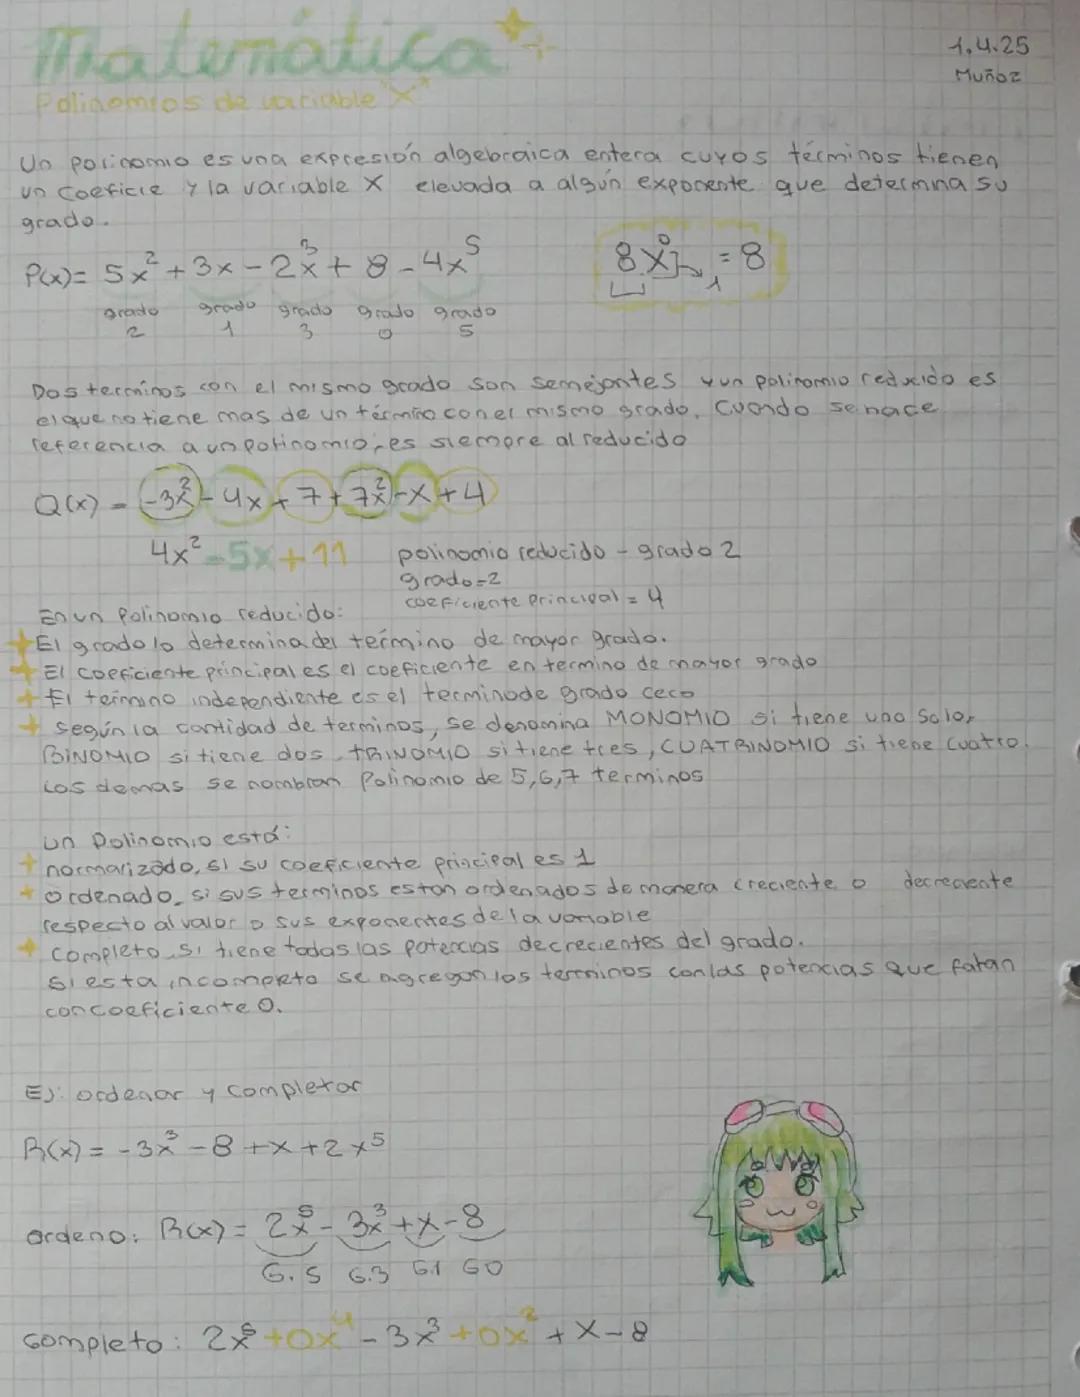 Matemática
1.4.25
Muñoz
Polinomios de variable "X"
Un polinomio es una expresión algebraica entera cuyos términos tienen
un coeficie y la variable X elevada a algún exponente que determna su
grado.
P(x)= 5x² + 3x - 2x³ + 8 - 4x⁵
8x⁰ 1 = 8
grado grado grado grado grado
2 1 3 0 5
Dos terminos con el mismo grado son semejantes y un polinomio reducido es
el que no tiene mas de un término con el mismo grado. Cuando se hace
referencia a un polinomio, es siempre al reducido
Q(x) = -3x² - 4x + 7 + 7x² - x + 4
4x² - 5x + 11 polinomio reducido - grado 2
grado = 2
coeficiente principal = 4
En un polinomio reducido:
El grado lo determina del término de mayor grado.
El coeficiente principal es el coeficiente en termino de mayor grado
El termino independiente es el termino de grado cero
según la cantidad de terminos, se denomina MONOMIO si tiene uno solo,
BINOMIO si tiene dos, TRINOMIO si tiene tres, CUATRINOMIO si tiene cuatro.
Los demas se nombran Polinomio de 5,6,7 terminos
un Polinomio está:
normarizado, si su coeficiente principal es 1
ordenado, si sus terminos estan ordenados de manera creciente o decreciente
respecto al valor o sus exponentes de la variable
completo, si tiene todas las potencias decrecientes del grado.
Si esta incompleto se agregan los terminos con las potencias que faltan
con coeficiente 0.
Ej: ordenar y completar
R(x) = -3x³ - 8 + x + 2x⁵
ordeno: R(x) = 2x⁵ - 3x³ + x - 8
G.5 G.3 G.1 G0
completo: 2x⁵ + 0x⁴ - 3x³ + 0x² + x - 8